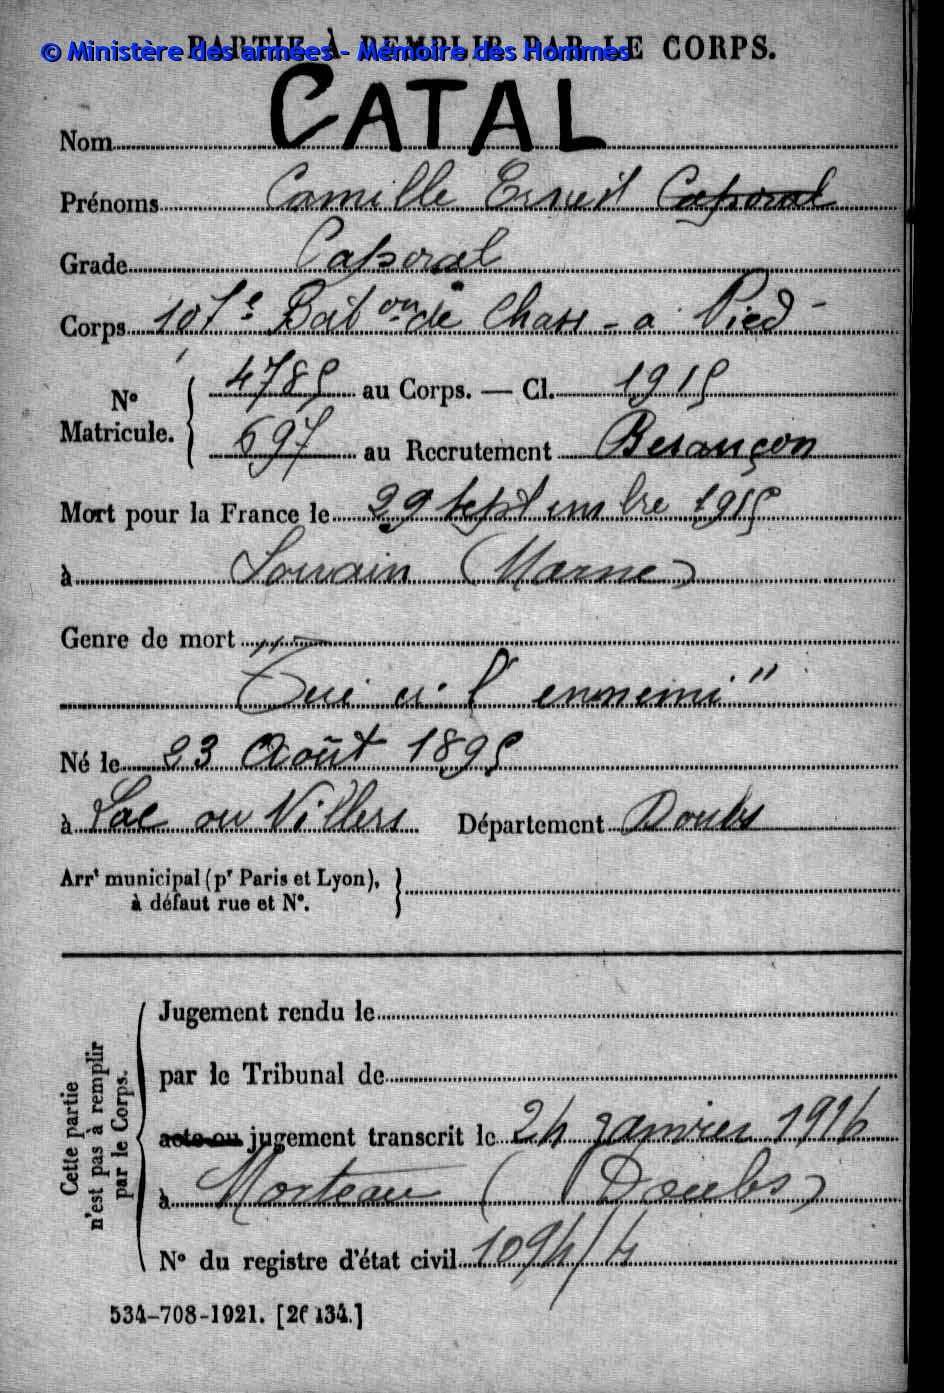 PARTIE À REMPLIR PAR LE CORPS.
© Ministère des armées - Mémoire des Hommes
Nom CATAL
Prénoms Camille Ernest Caporal
Grade Caporal
Corps 107e Bat on de Chass - a Pied -
Nº Matricule.
4785 au Corps. — Cl. 1915
697 au Recrutement Besançon
Mort pour la France le 29 septembre 1915
à Souain (Marne)
Genre de mort
"Tué à l'ennemi"
Né le 23 Août 1895
à Lac ou Villers Département Doubs
Arrt municipal (pr Paris et Lyon),
à défaut rue et Nº.
Cette partie
n'est pas à remplir
par le Corps.
Jugement rendu le
par le Tribunal de
acte ou jugement transcrit le 24 Janvier 1916
à Morteau (Doubs)
Nº du registre d'état civil 1094/4
534-708-1921. [26134.]